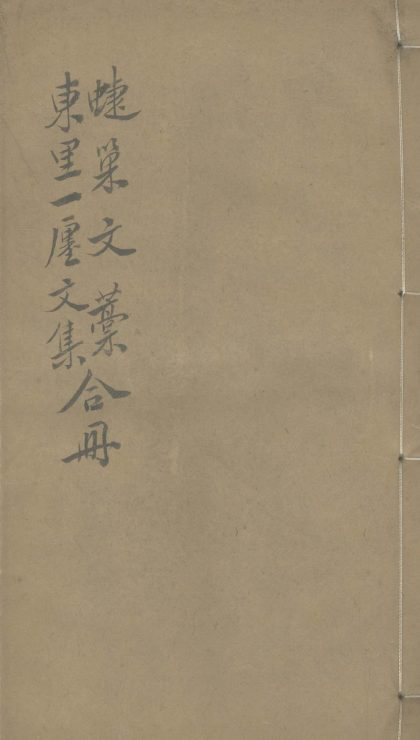 蜨巢文藁
東里一廛文集
合冊